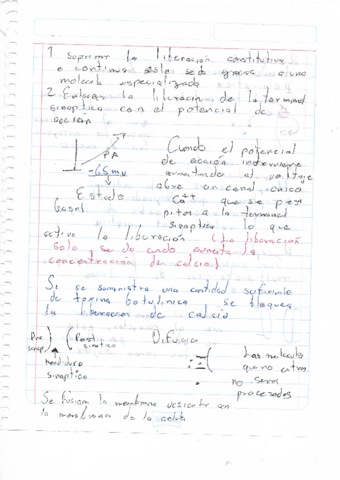 1 Suprimir la liberación constitutiva
o continua solo se da gracias a una
molecula especializada
2. Enlazar la liberación de la terminal
sinaptica con el potencial de
acción
Cuando el potencial
PA
de acción
aumentando el voltaje
-65mv
abre un canal ionico
Estado
Ca++ que se
basal
a la terminal
sinaptica lo que
active la liberación (La liberación
solo se da cuando aumenta la
concentración de calcio)
Si se suministra una cantidad suficiente
de toxina botulinica se bloquea
la liberacion de calcio
Pre
sinap.
Post
sinaptica
Difusión
hendidura
sinaptica
las moleculas
que no entran
no seran
procesadas
Se fusiona la membrana vesicular en
la membrana de la celula